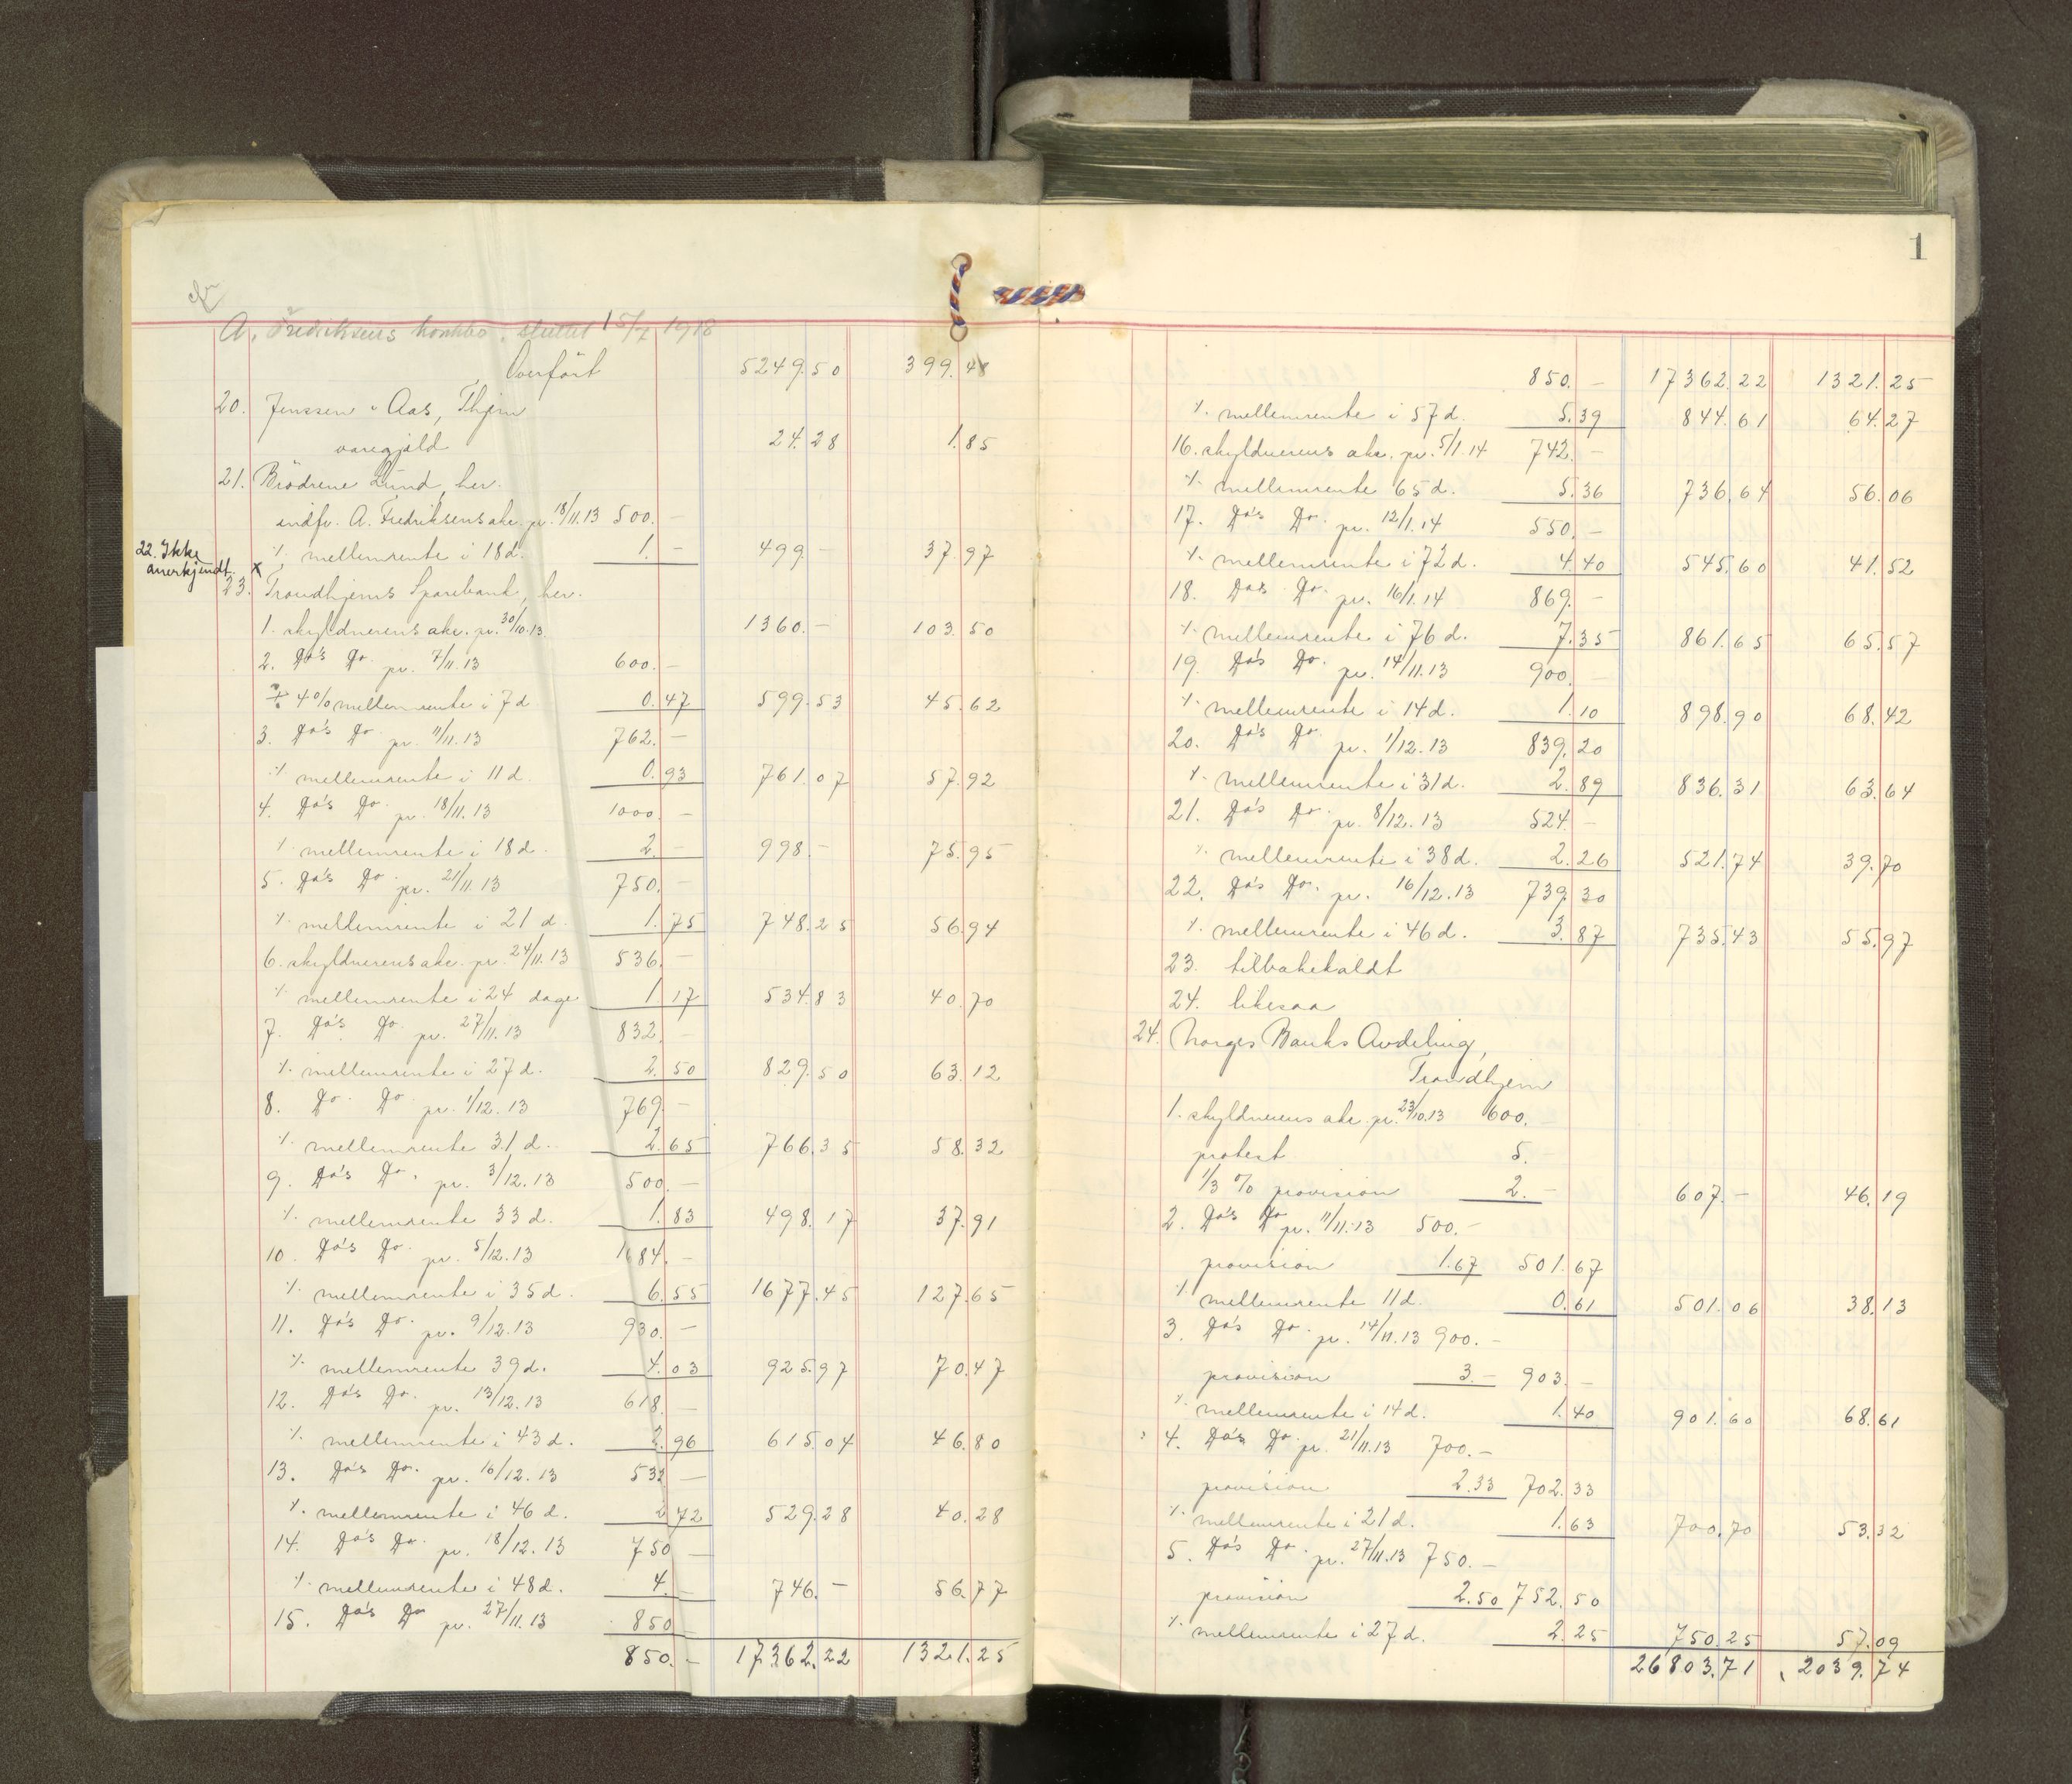 A. Fredriksens konkbo. sluttet 15/7 1918
Overført 5249.50 399.48
20. Jenssen & Aas, Thjem
varegjæld 24.28 1.85
21. Brödrene Lund, her.
indfr. A. Fredriksens akc. pr. 18/11.13 500.-
22. Ikke anerkjendt. x
⁒ mellemrente i 18 d. 1.- 499.- 37.97
23. Trondhjems Sparebank, her.
1. skyldnerens akc. pr. 30/10.13. 1360.- 103.50
2. Do's Do. pr. 7/11.13 600.-
⁒ 4% mellemrente i 7 d 0.47 599.53 45.62
3. Do's Do. pr. 11/11.13 762.-
⁒ mellemrente i 11 d. 0.93 761.07 57.92
4. Do's Do. pr. 18/11.13 1000.-
⁒ mellemrente i 18 d. 2.- 998.- 75.95
5. Do's Do. pr. 21/11.13 750.-
⁒ mellemrente i 21 d. 1.75 748.25 56.94
6. skyldnerens akc. pr. 24/11.13 536.-
⁒ mellemrente i 24 dage 1.17 534.83 40.70
7. Do's Do. pr. 27/11.13 832.-
⁒ mellemrente i 27 d. 2.50 829.50 63.12
8. Do. Do. pr. 1/12.13 769.-
⁒ mellemrente 31 d. 2.65 766.35 58.32
9. Do's Do. pr. 3/12.13 500.-
⁒ mellemrente 33 d. 1.83 498.17 37.91
10. Do's Do. pr. 5/12.13 1684.-
⁒ mellemrente i 35 d. 6.55 1677.45 127.65
11. Do's Do. pr. 9/12.13 930.-
⁒ mellemrente 39 d. 4.03 925.97 70.47
12. Do's Do. pr. 13/12.13 618.-
⁒ mellemrente i 43 d. 2.96 615.04 46.80
13. Do's Do. pr. 16/12.13 532.-
⁒ mellemrente i 46 d. 2.72 529.28 40.28
14. Do's Do. pr. 18/12.13 750.-
⁒ mellemrente i 48 d. 4.- 746.- 56.77
15. Do's Do pr. 27/11.13 850.-
850.- 17362.22 1321.25
1
850.- 17362.22 1321.25
⁒ mellemrente i 57 d. 5.39 844.61 64.27
16. skyldnerens akc. pr. 5/1.14 742.-
⁒ mellemrente 65 d. 5.36 736.64 56.06
17. Do's Do. pr. 12/1.14 550.-
⁒ mellemrente i 72 d. 4.40 545.60 41.52
18. Do's Do. pr. 16/1.14 869.-
⁒ mellemrente i 76 d. 7.35 861.65 65.57
19. Do's Do. pr. 14/11.13 900.-
⁒ mellemrente i 14 d. 1.10 898.90 68.42
20. Do's Do. pr. 1/12.13 839.20
⁒ mellemrente i 31 d. 2.89 836.31 63.64
21. Do's Do. pr. 8/12.13 524.-
⁒ mellemrente i 38 d. 2.26 521.74 39.70
22. Do's Do. pr. 16/12.13 739.30
⁒ mellemrente i 46 d. 3.87 735.43 55.97
23. tilbakekaldt
24. likesaa
24. Norges Banks Avdeling,
Trondhjem
1. skyldnerens akc. pr. 23/10.13 600.-
protest 5.-
1/3 % provision 2.- 607.- 46.19
2. Do's Do pr. 11/11.13 500.-
provision 1.67 501.67
⁒ mellemrente 11 d. 0.61 501.06 38.13
3. Do's Do. pr. 14/11.13 900.-
provision 3.- 903.-
⁒ mellemrente i 14 d. 1.40 901.60 68.61
4. Do's Do. pr. 21/11.13 700.-
provision 2.33 702.33
⁒ mellemrente i 21 d. 1.63 700.70 53.32
5. Do's Do. pr. 27/11.13 750.-
provision 2.50 752.50
⁒ mellemrente i 27 d. 2.25 750.25 57.09
26803.71 2039.74